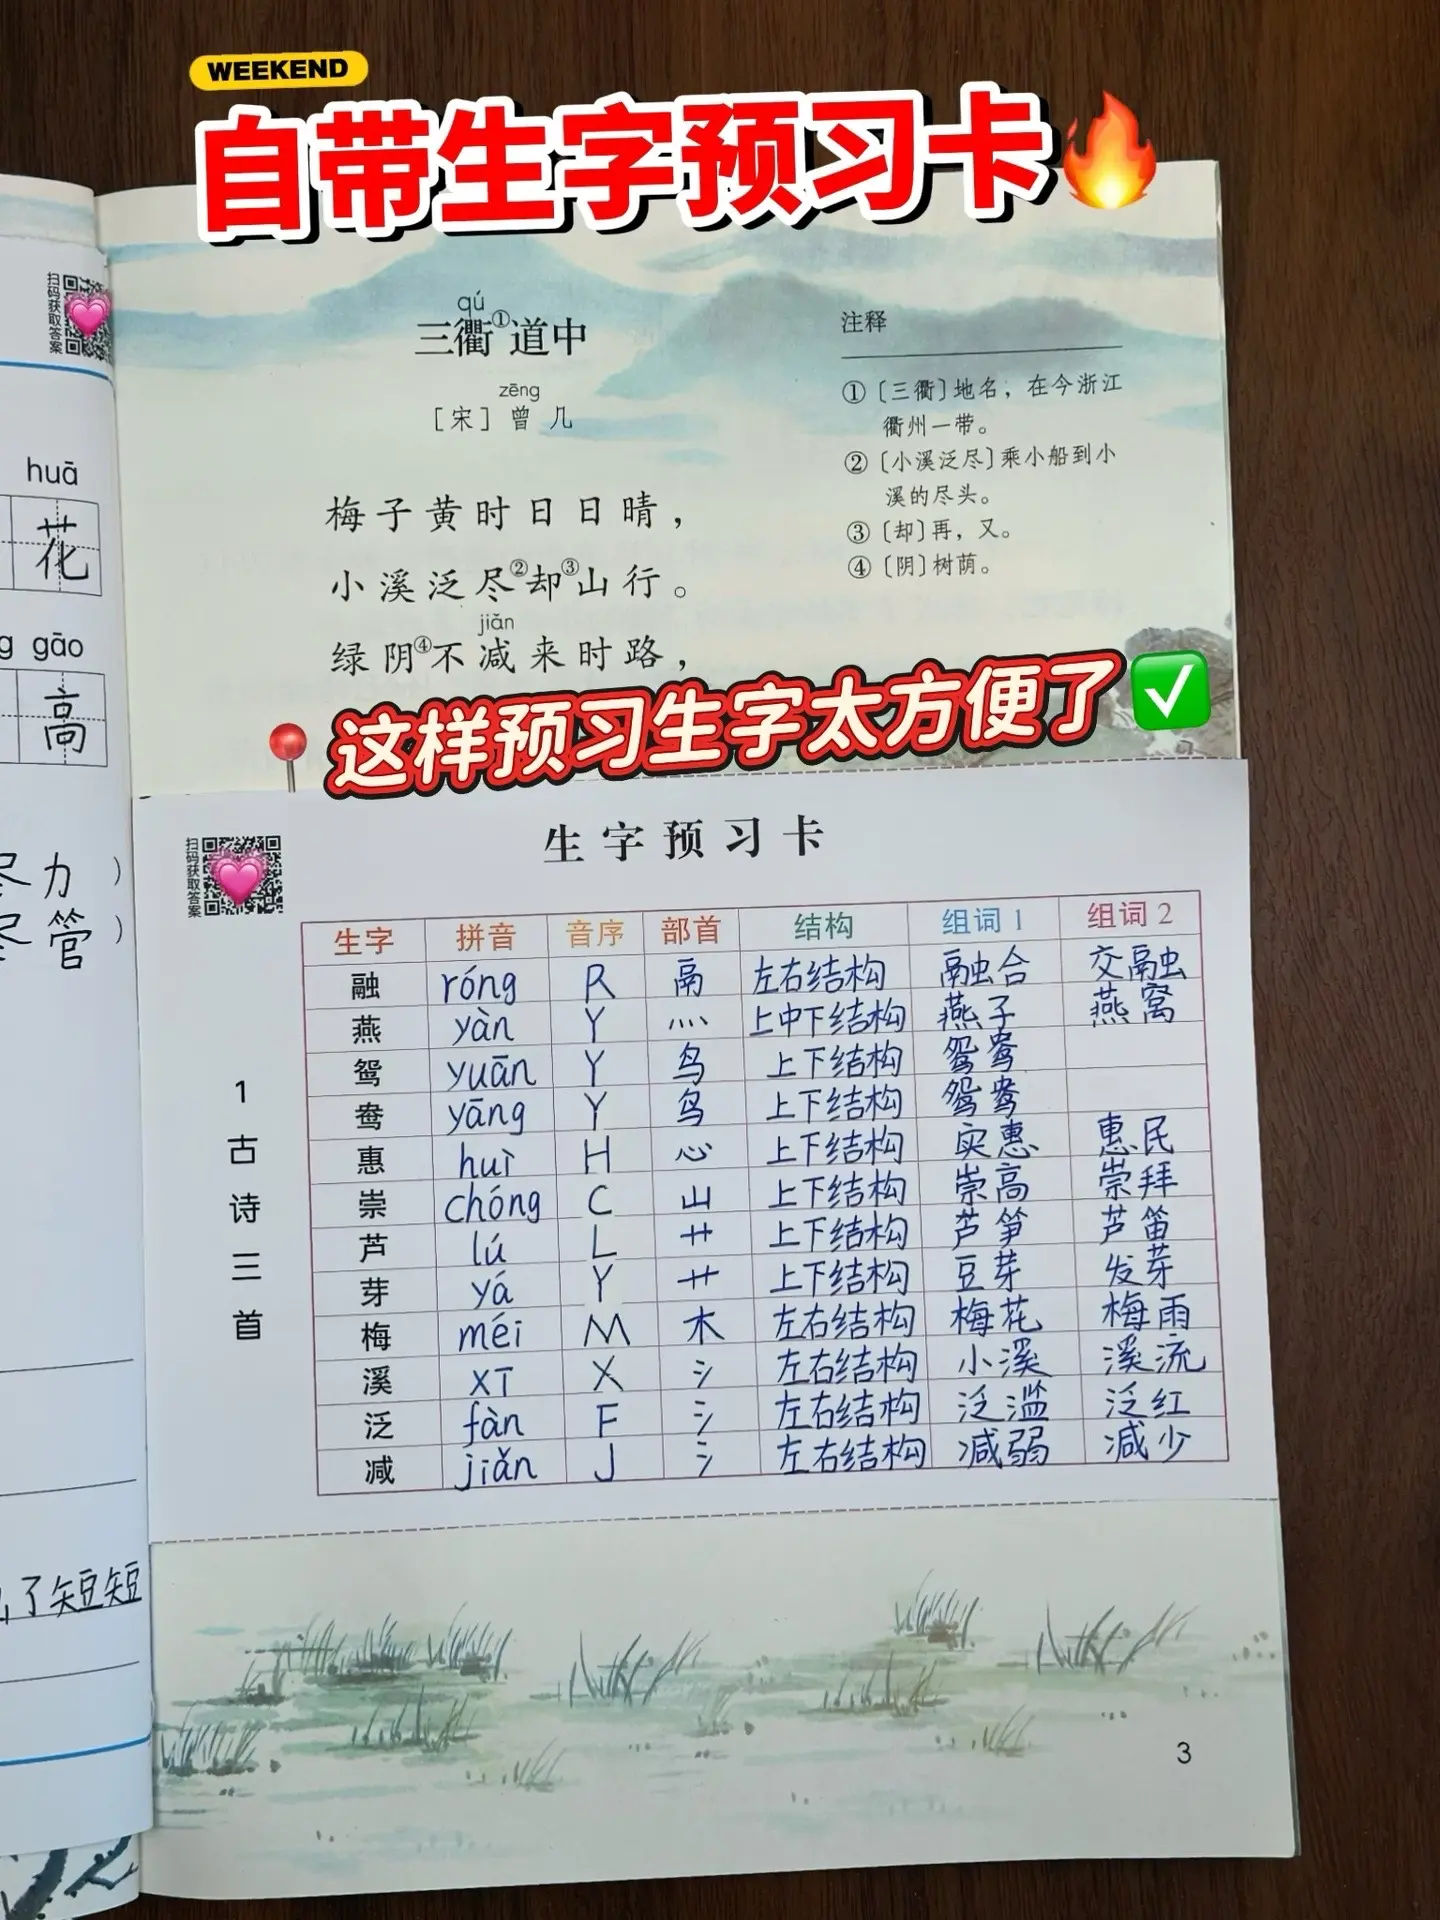 WEEKEND
自带生字预习卡
扫码获取答案
huā
花
g gāo
高
尽力）
尽管）
了短短
qú
三衢①道中
zēng
［宋］曾几
梅子黄时日日晴，
小溪泛尽②却③山行。
jiǎn
绿阴④不减来时路，
注释
①〔三衢〕地名，在今浙江
衢州一带。
②〔小溪泛尽〕乘小船到小
溪的尽头。
③〔却〕再，又。
④〔阴〕树荫。
这样预习生字太方便了
扫码获取答案
生字预习卡
1古诗三首
生字 拼音 音序 部首 结构 组词1 组词2
融 róng R 鬲 左右结构 融合 交融
燕 yàn Y 灬 上中下结构 燕子 燕窝
鸳 yuān Y 鸟 上下结构 鸳鸯
鸯 yāng Y 鸟 上下结构 鸳鸯
惠 huì H 心 上下结构 实惠 惠民
崇 chóng C 山 上下结构 崇高 崇拜
芦 lú L 艹 上下结构 芦笋 芦笛
芽 yá Y 艹 上下结构 豆芽 发芽
梅 méi M 木 左右结构 梅花 梅雨
溪 xī X 氵 左右结构 小溪 溪流
泛 fàn F 氵 左右结构 泛滥 泛红
减 jiǎn J 冫 左右结构 减弱 减少
3